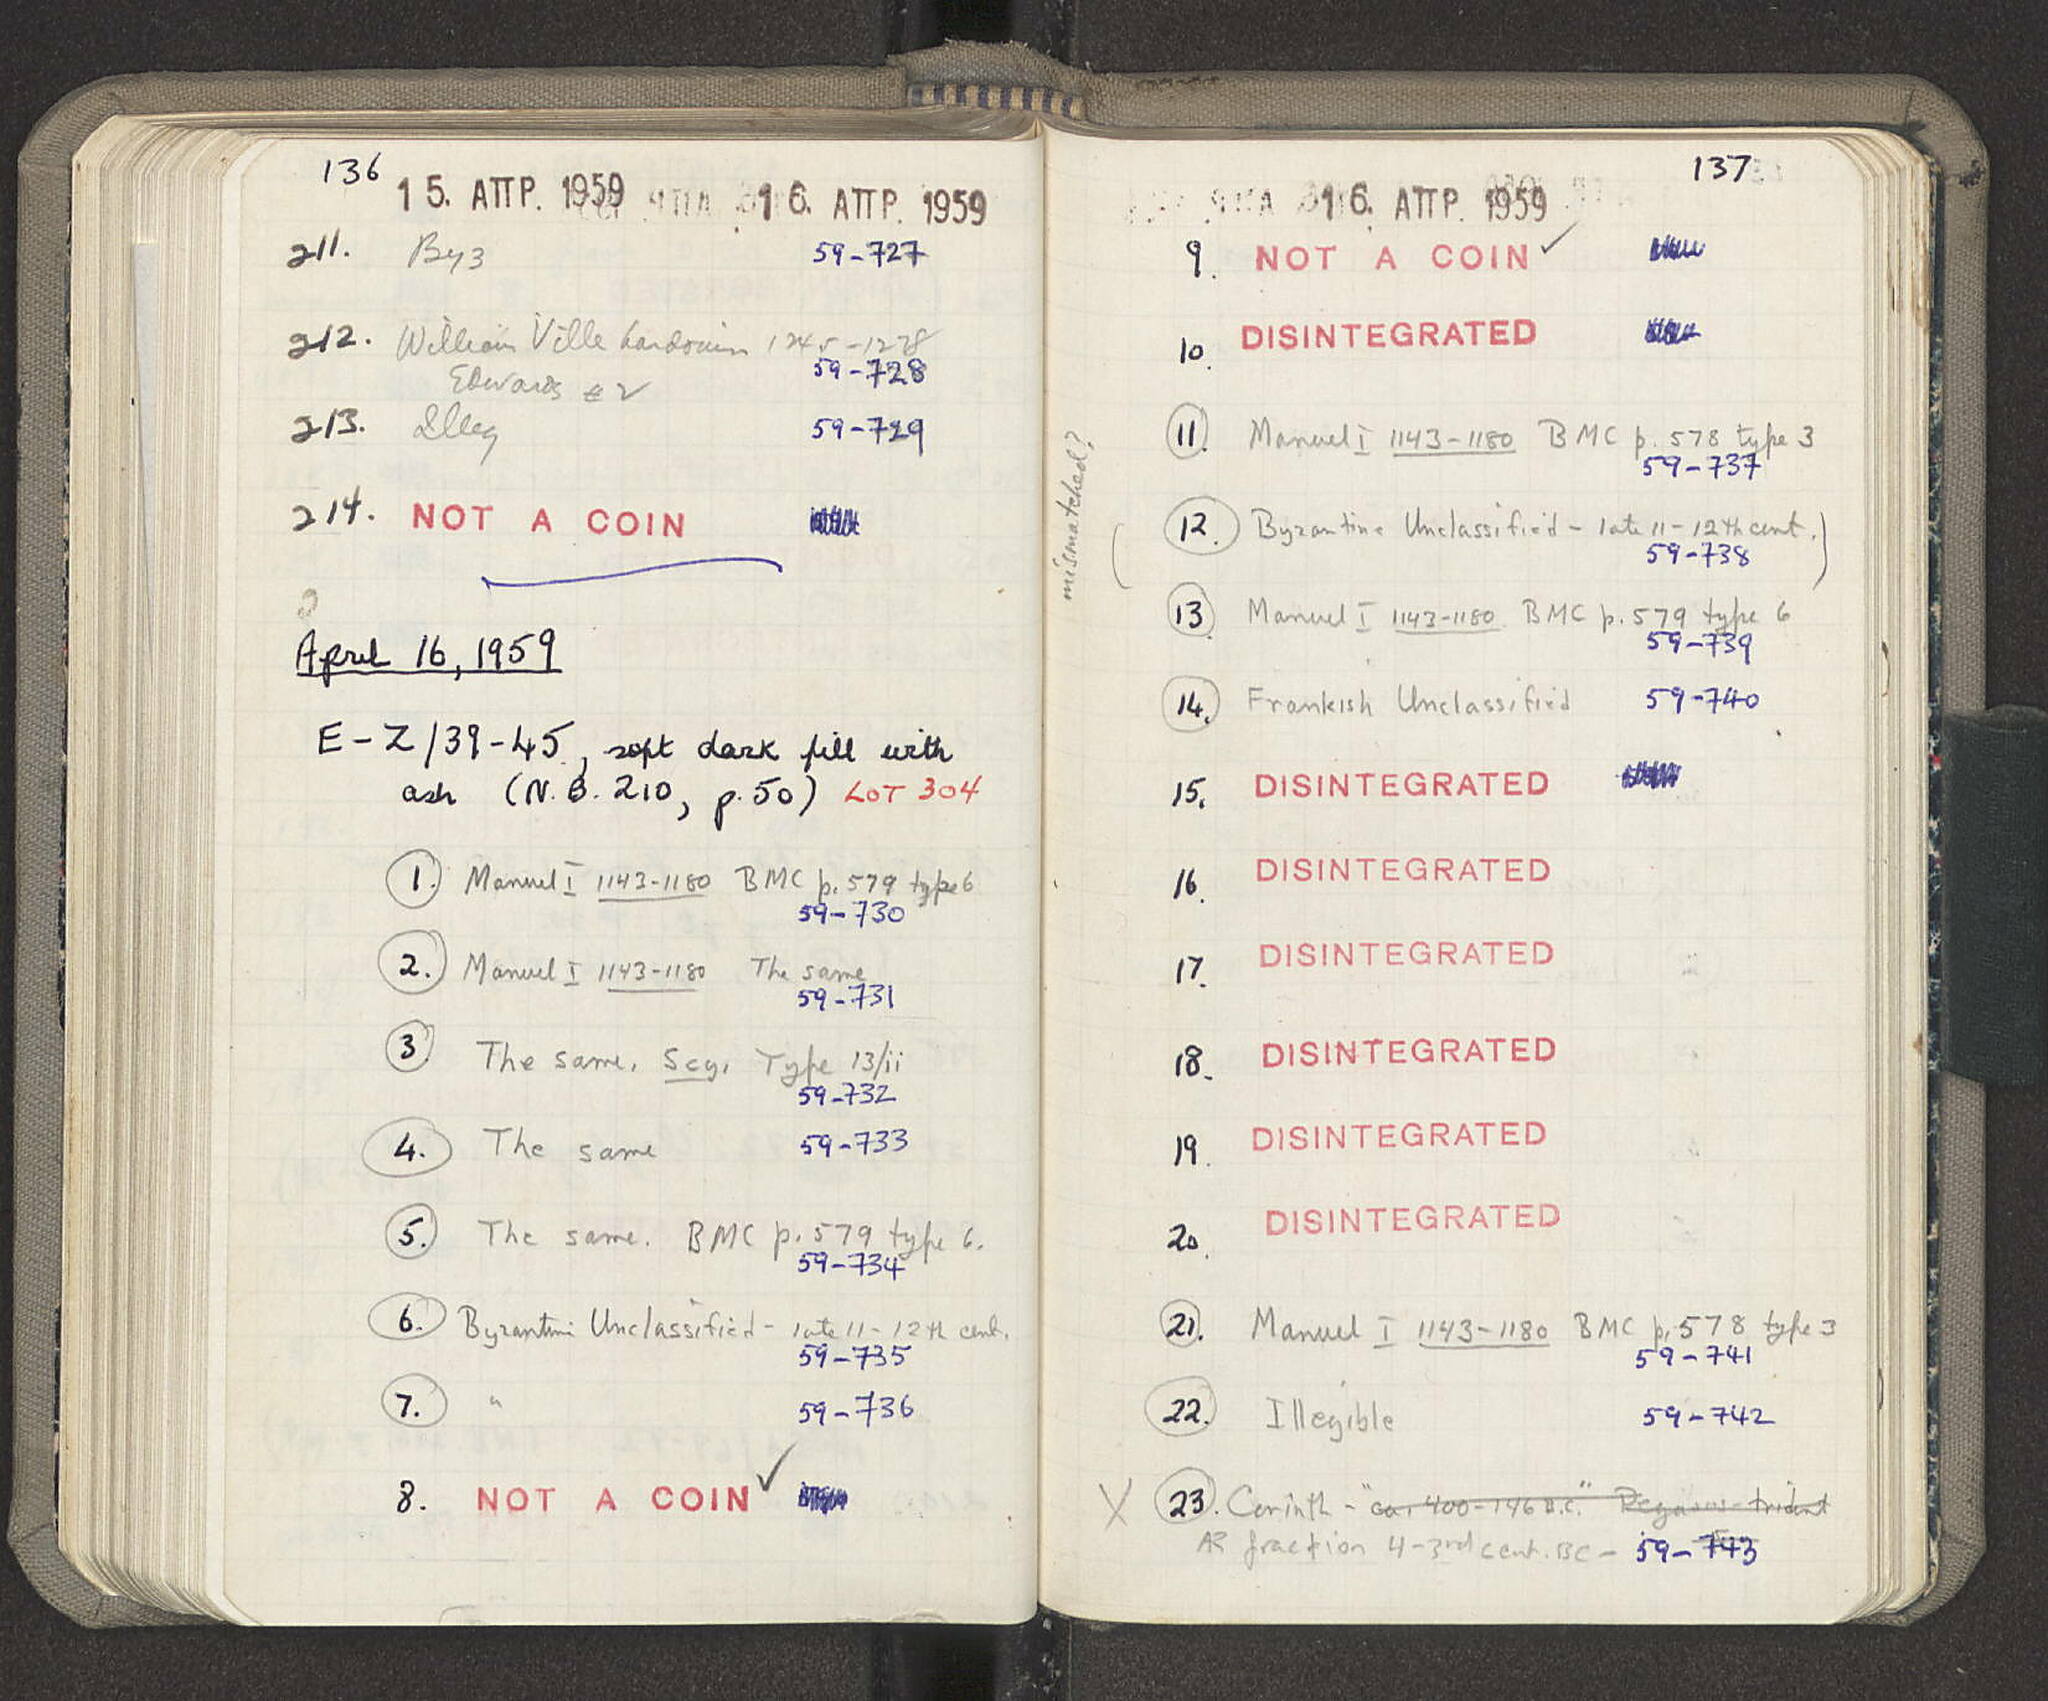 136
15. ΑΠΡ. 1959 16. ΑΠΡ. 1959
211. Byz 59-727
212. William Villehardouin 1245-1278
59-728
Edwards #2
213. Illeg 59-729
214. NOT A COIN
April 16, 1959
E-Z/39-45, soft dark fill with
ash (N.B. 210, p.50) LOT 304
1. Manuel I 1143-1180 BMC p.579 type 6
59-730
2. Manuel I 1143-1180 The same
59-731
3. The same. Scy, Type 13/ii
59-732
4. The same 59-733
5. The same. BMC p.579 type 6.
59-734
6. Byzantine Unclassified - late 11-12th cent.
59-735
7. " 59-736
8. NOT A COIN ✓
137
16. ΑΠΡ. 1959
9. NOT A COIN ✓
10. DISINTEGRATED
11. Manuel I 1143-1180 BMC p.578 type 3
59-737
mismatched?
(12. Byzantine Unclassified - late 11-12th cent.)
59-738
13. Manuel I 1143-1180 BMC p.579 type 6
59-739
14. Frankish Unclassified 59-740
15. DISINTEGRATED
16. DISINTEGRATED
17. DISINTEGRATED
18. DISINTEGRATED
19. DISINTEGRATED
20. DISINTEGRATED
21. Manuel I 1143-1180 BMC p.578 type 3
59-741
22. Illegible 59-742
X 23. Corinth - "ca. 400-146 B.C." Pegasus - trident
AR fraction 4-3rd cent. BC - 59-743